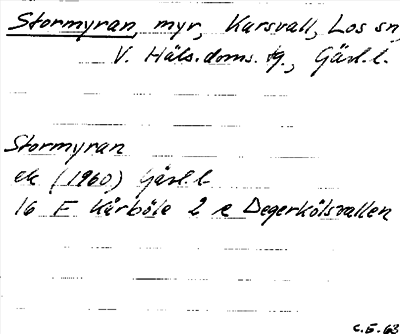 Stormyran, myr, Karsvall, Los sn,
V. Häls. doms. tg., Gävl. l.
Stormyran
ek (1960) Gävl. l
16 F Kårböle 2 e Degerkölsvallen
C.E. 63